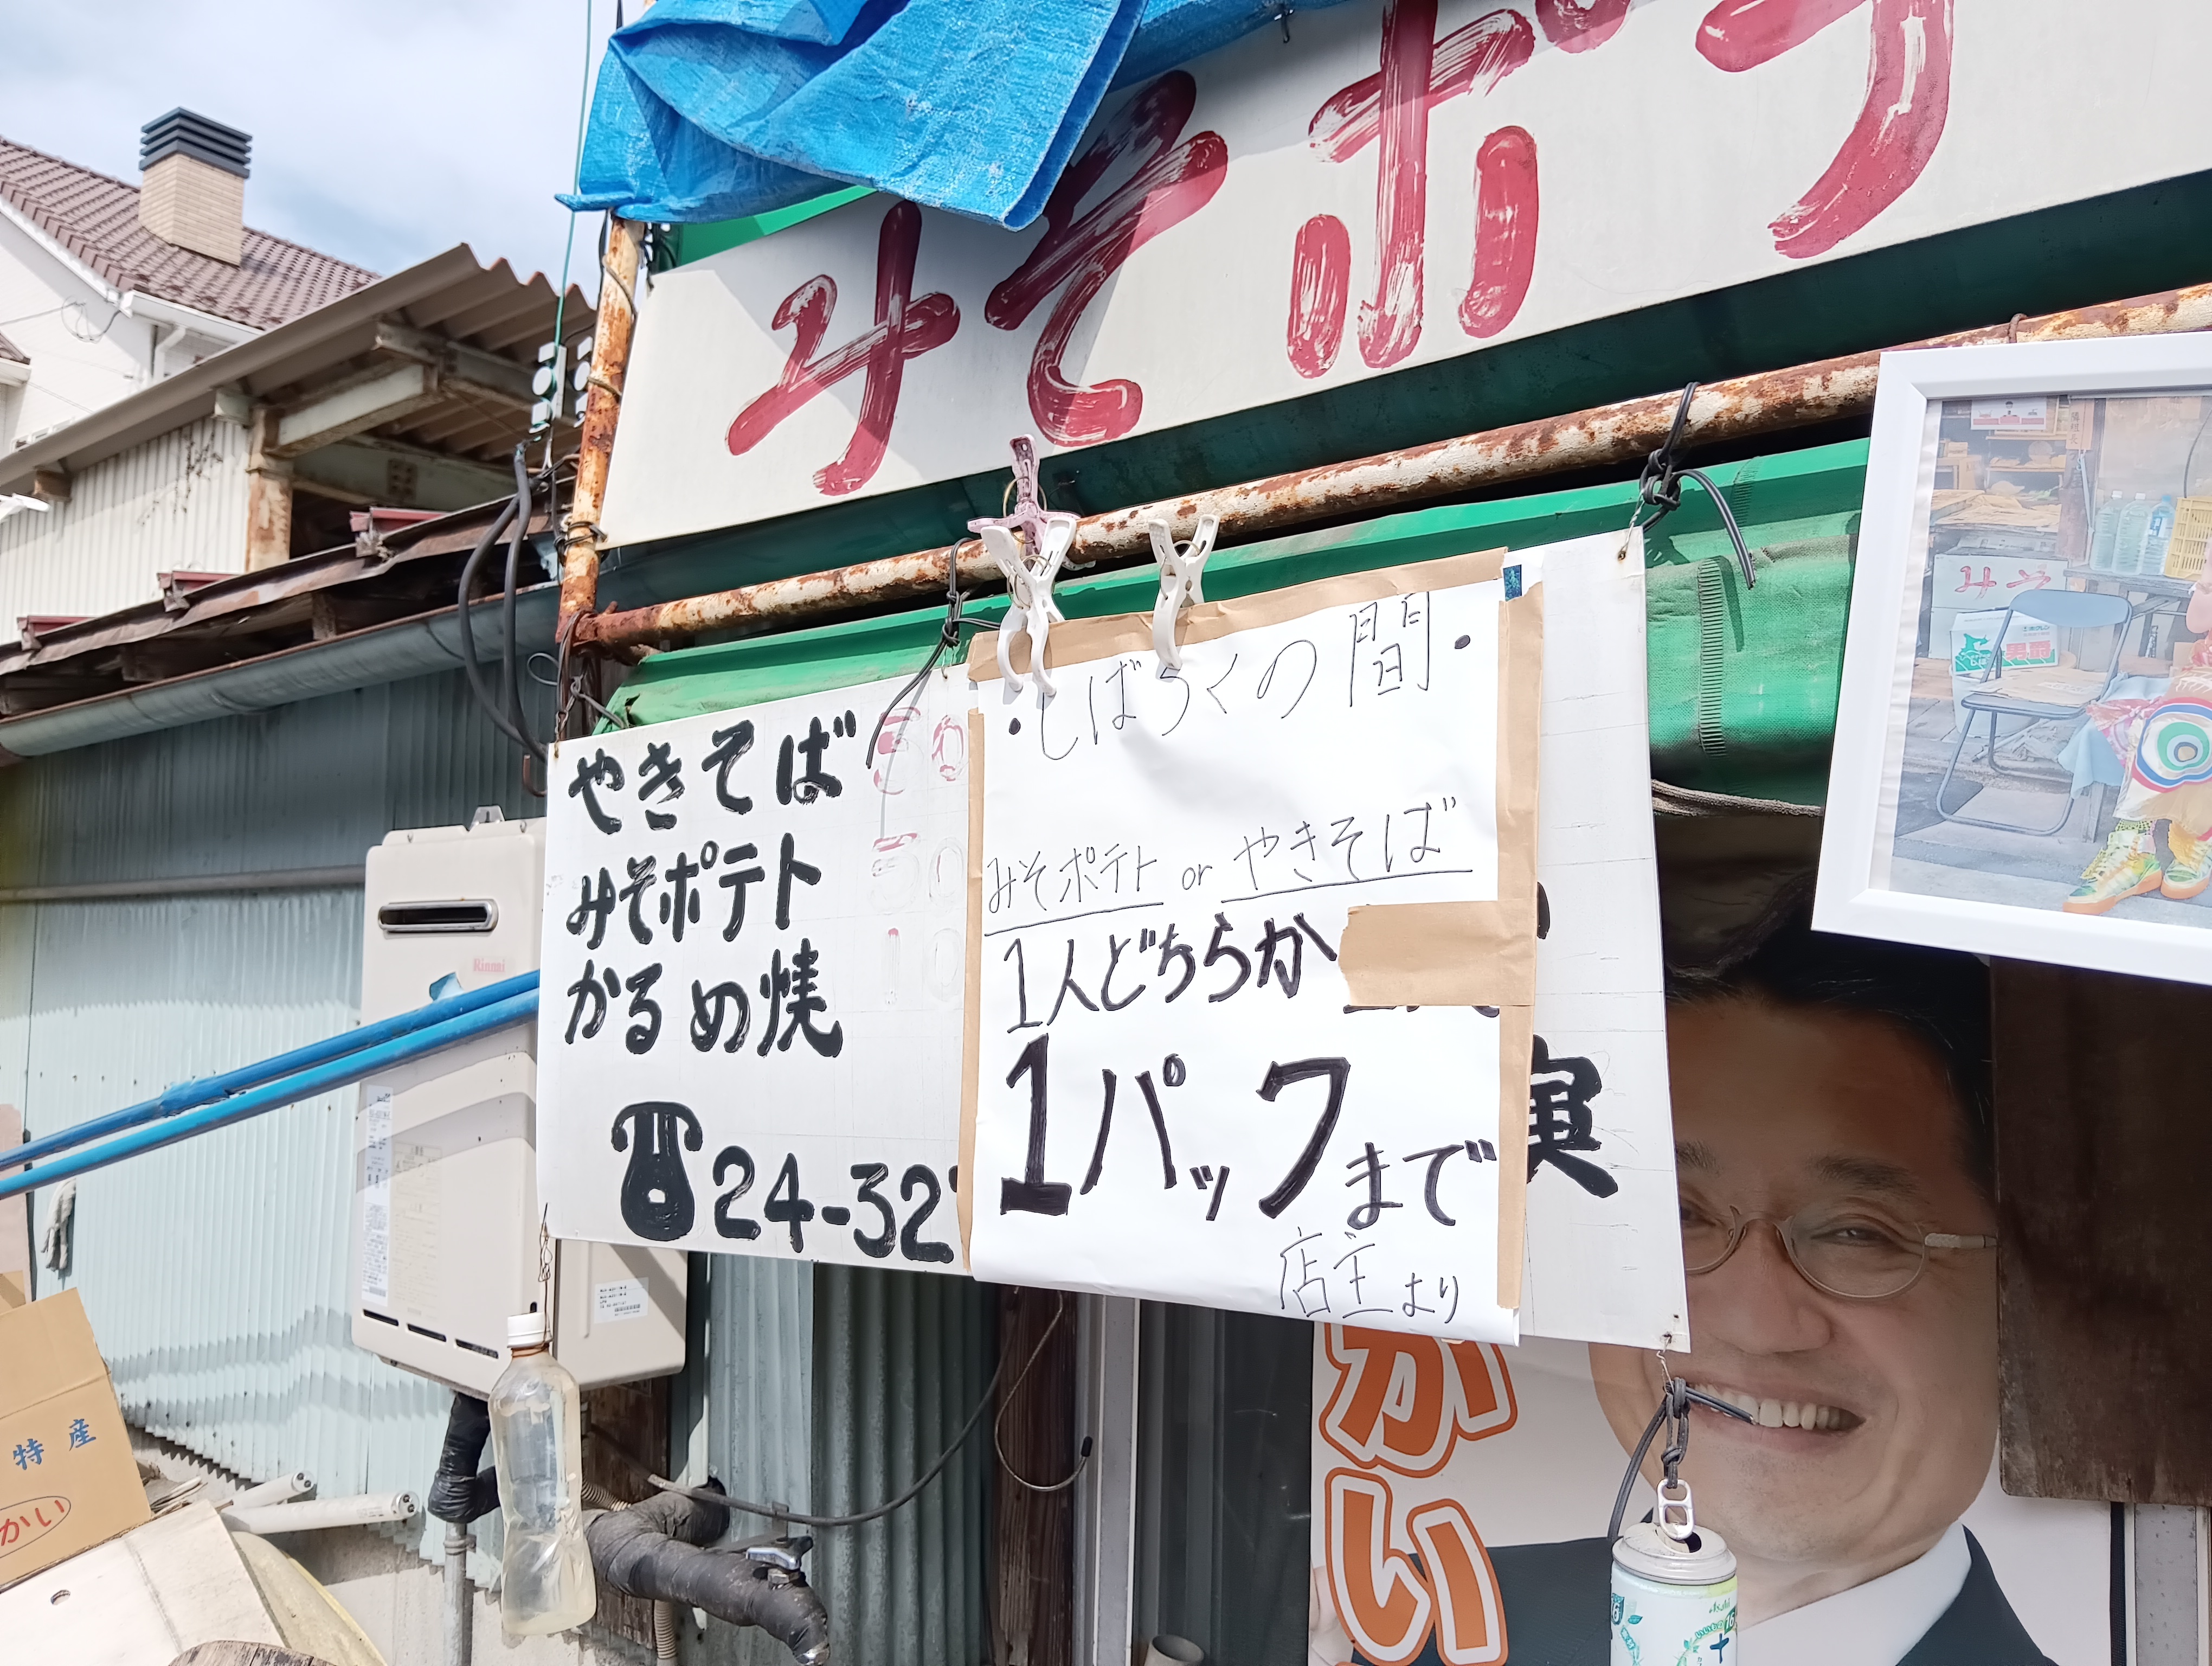 みそポテ
やきそば 50
みそポテト 50
かるめ焼 10
☎24-32
実
・しばらくの間・
みそポテト or やきそば
1人どちらか
1パックまで
店主より
みそ
Rinnai
かい
特産
かい
Asahi
十六